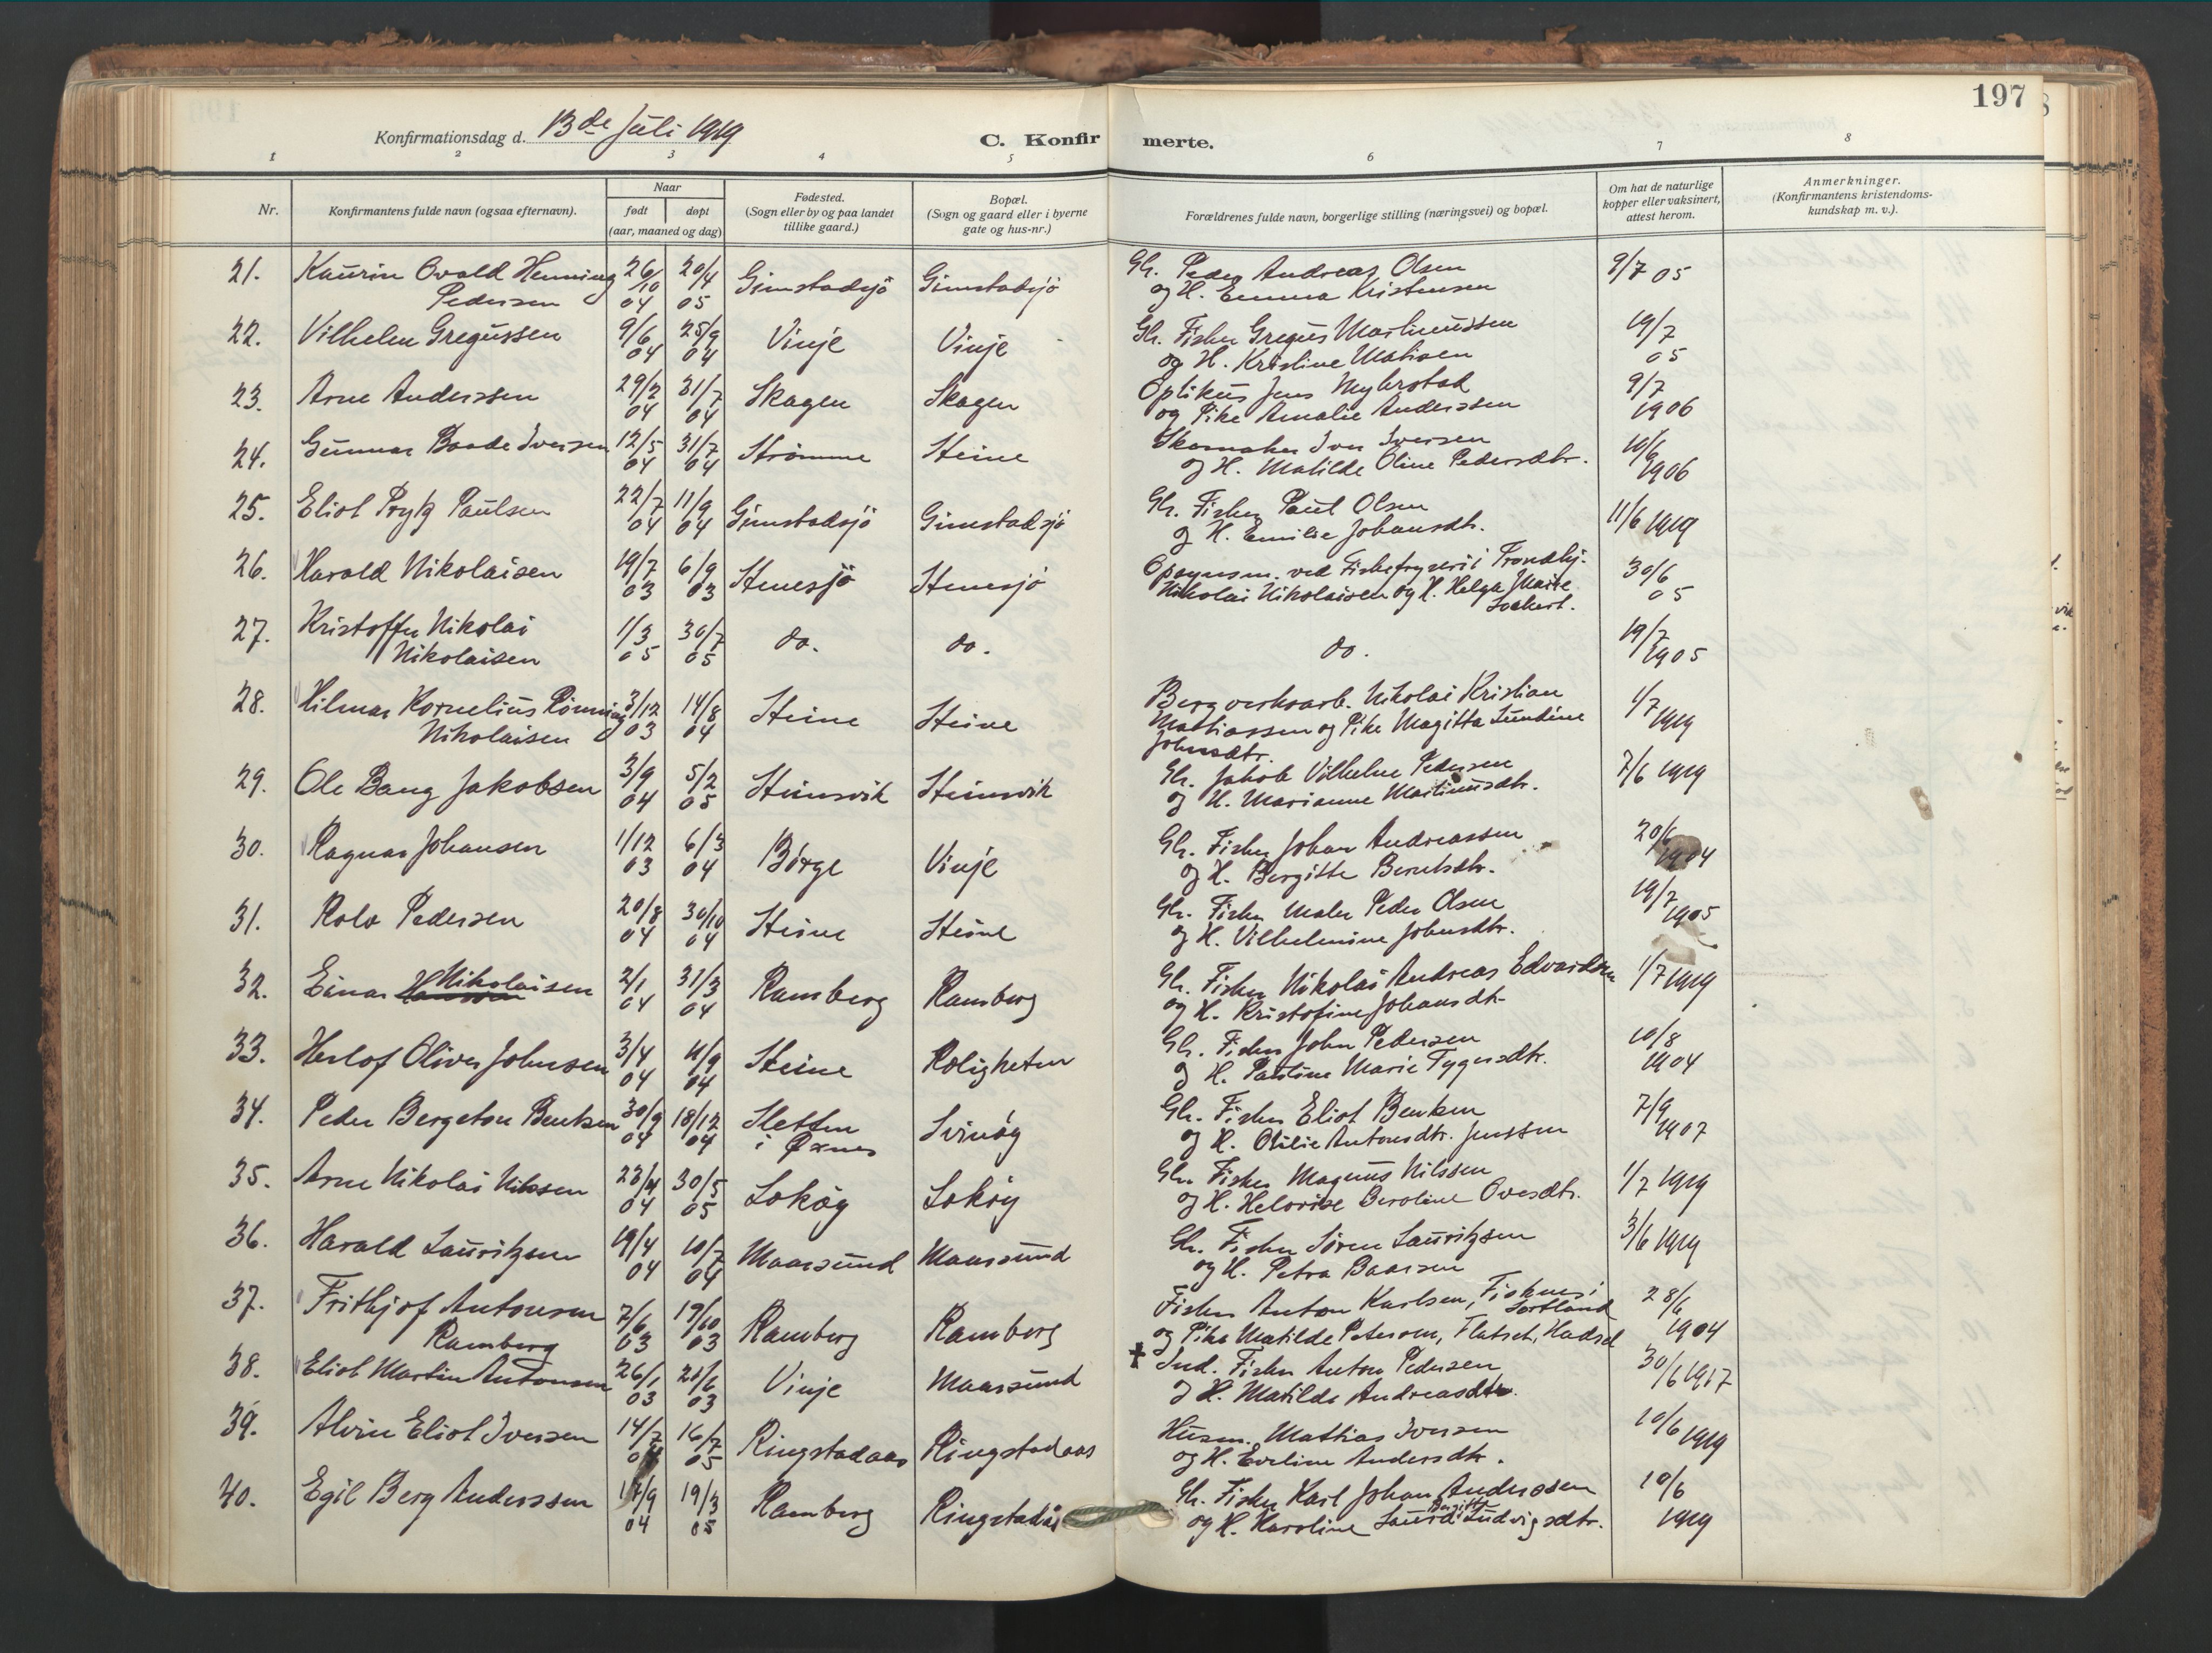 197
Konfirmationsdag d. 13de Juli 1919
C. Konfirmerte.
1 2 3 4 5 6 7 8
Nr.
Konfirmantens fulde navn (ogsaa efternavn).
Naar
født døpt
(aar, maaned og dag)
Fødested.
(Sogn eller by og paa landet
tillike gaard.)
Bopæl.
(Sogn og gaard eller i byerne
gate og hus-nr.)
Forældrenes fulde navn, borgerlige stilling (næringsvei) og bopæl.
Om hat de naturlige
kopper eller vaksinert,
attest herom.
Anmerkninger.
(Konfirmantens kristendoms-
kundskap m. v.).
21. Kaurin Ovald Henning 26/10 20/4 Gimstadsjö Gimstadsjö Gbr. Peder Andreas Olsen 9/7 05
Pedersen 04 05 og H. Emma Kristensen
22. Vilhelm Gregussen 9/6 25/9 Vinje Vinje Gbr. Fisker Gregus Martinussen 19/7
04 04 og H. Kristine Matisen 05
23. Arne Anderssen 29/2 31/7 Skagen Skagen Optikus Jens Myhrstad 9/7
04 04 og Pike Amalie Anderssen 1906
24. Gunnar Baade Iversen 12/5 31/7 Strömme Steine Skomaker Iver Iversen 10/6
04 04 og H. Matilde Oline Pedersdtr. 1906
25. Eliot Prytz Paulsen 22/7 11/9 Gimstadsjö Gimstadsjö Gbr. Fisker Paul Olsen 11/6 1919
04 04 og H. Emilie Johansdtr.
26. Harald Nikolaisen 19/7 6/9 Stenesjö Stenesjö Opsynsm. ved Fiskefryseri i Trondhj. 30/6
03 03 Nikolai Nikolaisen og H. Helga Marie 05
27. Kristoffer Nikolai 1/3 30/7 do. do. do. 19/7
Nikolaisen 05 05 1905
28. Hilmar Kornelius Rönning 3/12 14/8 Steine Steine Bergverksarb. Nikolai Kristian 1/7
Nikolaisen 03 04 Mathiassen og Pike Magitta Lundine 1919
Johnsdtr.
29. Ole Bang Jakobsen 3/9 5/2 Steinsvik Steinsvik Gbr. Jakob Vilhelm Pedersen 7/6 1919
04 05 og H. Marianne Martinusdtr.
30. Ragnar Johansen 1/12 6/3 Börge Vinje Gbr. Fisker Johan Andreassen 20/6
03 04 og H. Bergitte Berntsdtr. 1904
31. Rolv Pedersen 20/8 30/10 Steine Steine Gbr. Fisker Maler Peder Olsen 19/7
04 04 og H. Vilhelmine Johnsdtr. 1905
32. Einar Hanssen Nikolaisen 2/1 31/3 Ramberg Ramberg Gbr. Fisker Nikolai Andreas Edvardsen 1/7 1919
04 04 og H. Kristofine Johansdtr
33. Herlof Oliver Johnsen 3/4 4/9 Steine Roligheten Gbr. Fisker John Pedersen 10/8
04 04 og H. Pauline Marie Tygersdtr. 1904
34. Peder Bergeton Bentsen 30/9 18/12 Sletten Svinöy Gbr. Fisker Eliot Bentsen 7/9
04 04 i Øxnes og H. Otilie Antonsdtr. Jenssen 1907
35. Arne Nikolai Nilssen 23/4 30/5 Loköy Loköy Gbr. Fisker Magnus Nilssen 1/7 1919
04 05 og H. Helovise Beroline Ovesdtr.
36. Harald Lauritzsen 19/4 10/7 Maarsund Maarsund Gbr. Fisker Sören Lauritzsen 3/6 1919
04 04 og H. Petra Baarsen
37. Frithjof Antonsen 7/6 19/10 Ramberg Ramberg Fisker Anton Karlsen, Fiskenes i Sortland 28/6
Ramberg 03 03 og Pike Matilde Petersen, Flatset, Hadsel 1904
38. Eliot Martin Antonsen 26/1 21/6 Vinje Maarsund † Ind. Fisker Anton Pedersen 30/6 1917
03 03 og H. Matilde Andreasdtr.
39. Alvin Eliot Iversen 14/7 16/7 Ringstadaas Ringstadaas Husm. Mathias Iversen 10/6 1919
05 og H. Eveline Andersdtr.
40. Egil Berg Anderssen 17/9 19/3 Ramberg Ringstadås Gbr. Fisker Karl Johan Anderssen 10/6
04 05 og H. Karoline Bergitte Ludvigsdtr. 1919